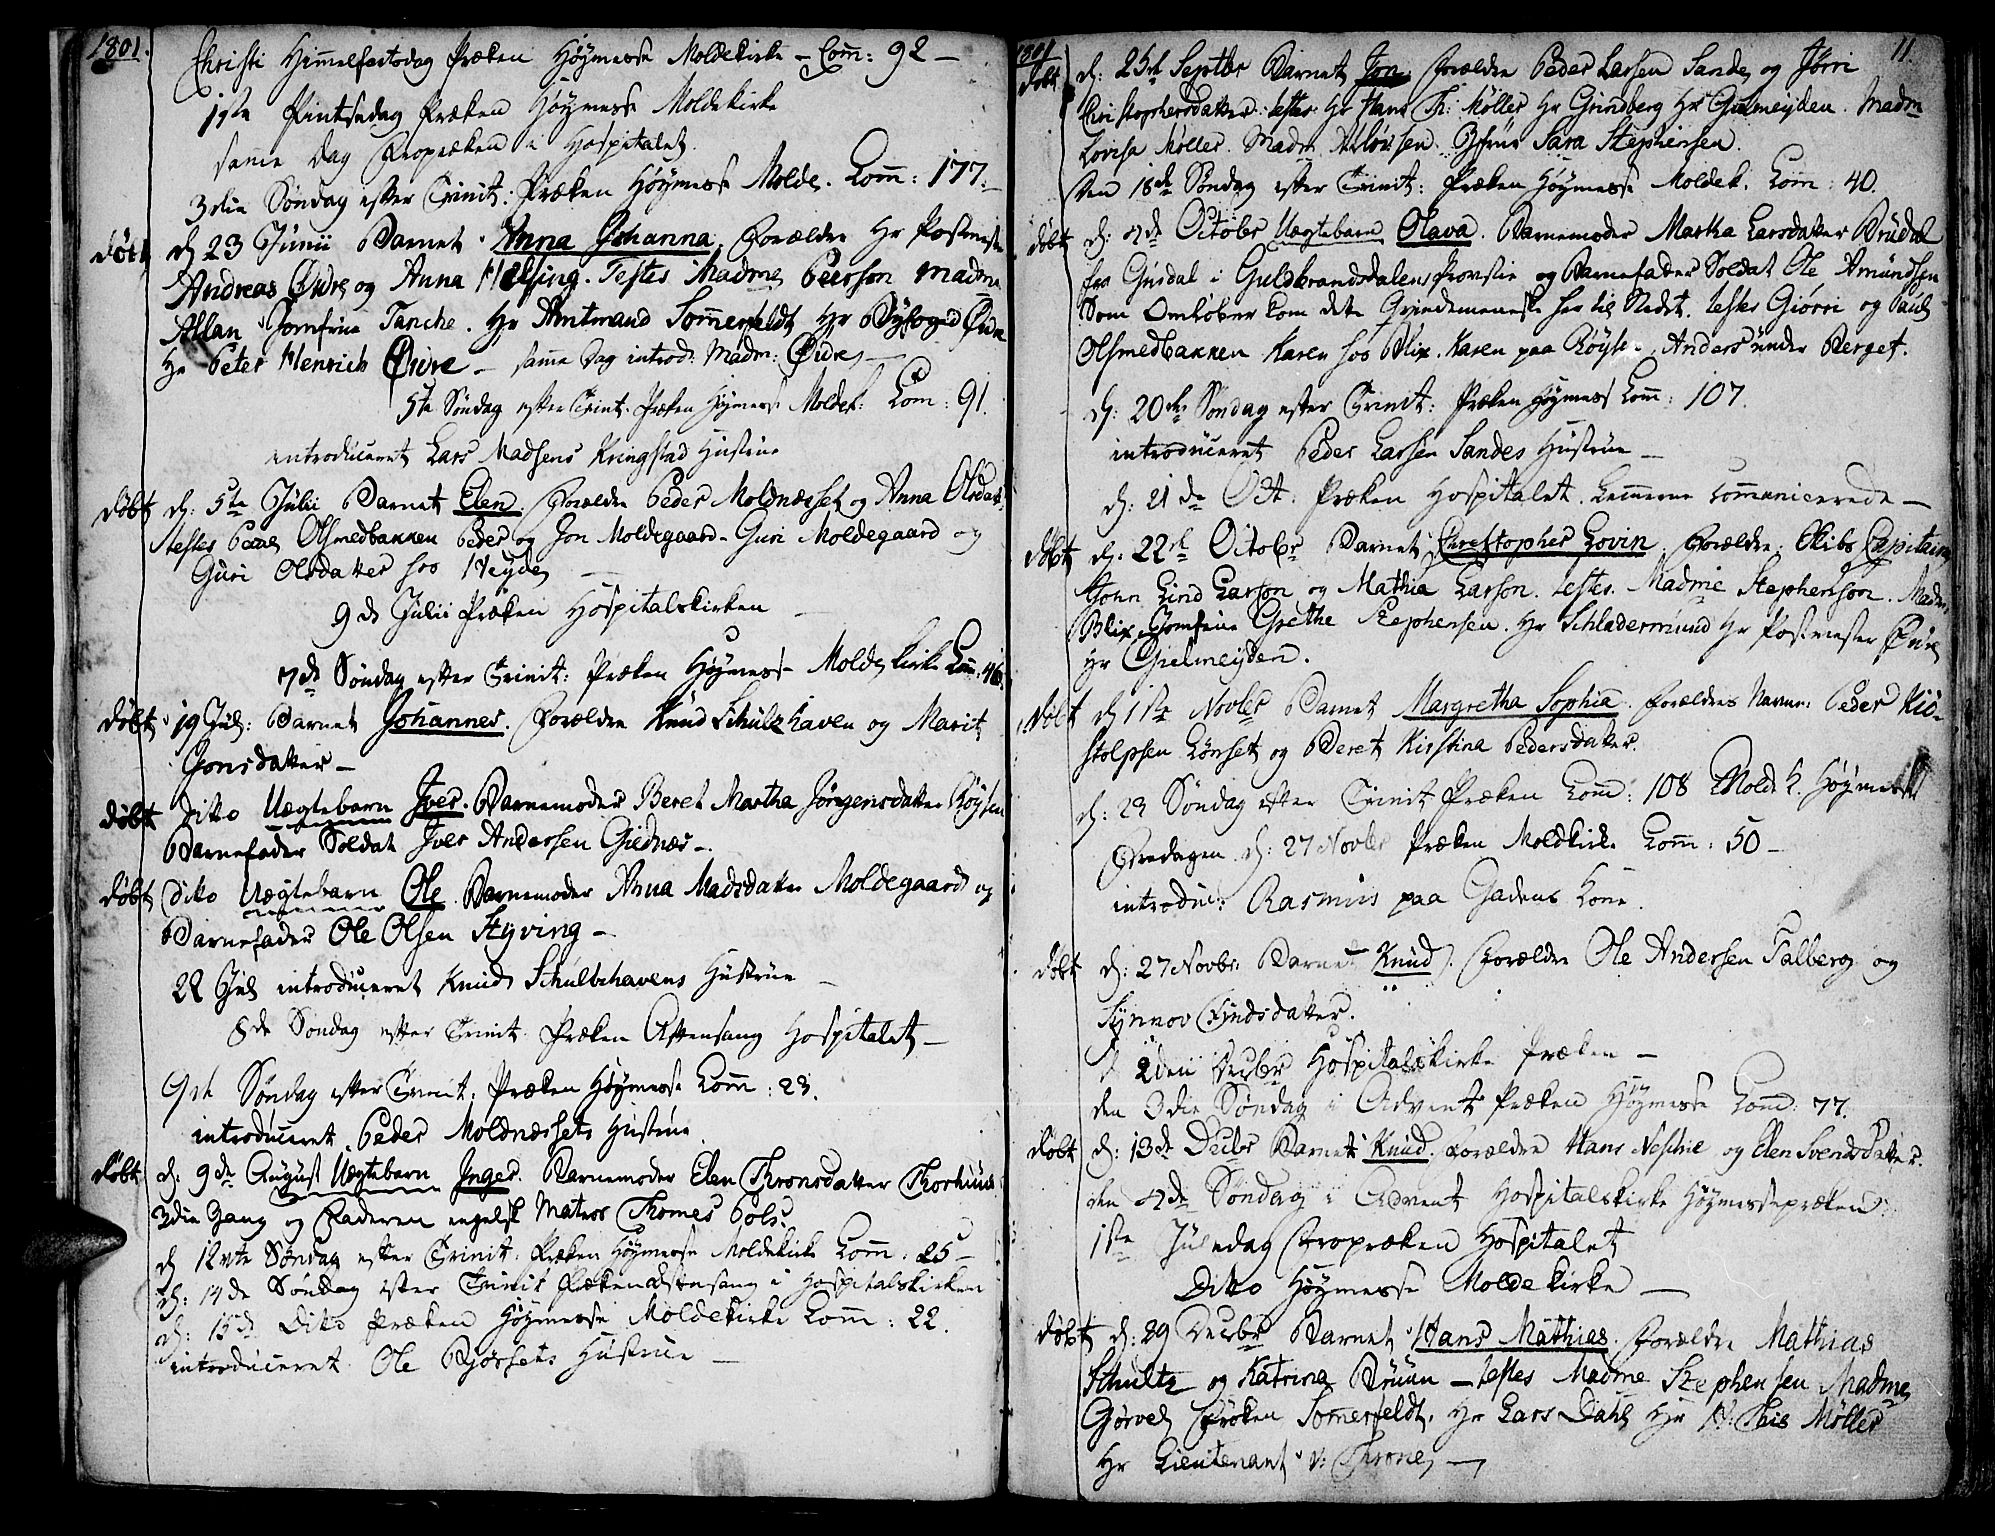 1801.
Christi Himmelfartsdag Præken Høymesse Moldekirke – Com: 92 –
1ste Pintsedag Præken Høymesse Moldekirke
samme Dag Froprækén i Hospitalet.
3die Søndag efter Trinit: Præken Høymesse Molde. Comm: 177.
døbt d. 23 Junii Barnet Anna Johanna. Forældre Hr Postmester
Andreas Øwre og Anna Helsing. Testes Madme Peerson Madme
Allan Jomfrue Tanche. Hr Amtmand Sommerfeldt Hr Byfoged Øwre
Hr Peter Henrich Øwre – samme Dag introd: Madm: Øwre –
5te Søndag efter Trinit: Præken Høymesse Moldek: Com: 91.
introduceret Lars Madsens Kringstad Hustrue
døbt d: 5te Julii Barnet Elen. Forældre Peder Moldnæsset og Anna Olsdatt:
testes Olsmedbakken Peder og Jon Moldegaard – Guri Moldegaard og
Guri Olsdatter hos Heyde –
9de Julii Præken Hospitalskirken –
7de Søndag efter Trinit: Præken Høymesse Molde kirke Com: 46.
døbt 19 Jul: Barnet Johannes. Forældre Knud Schulzhaven og Marit
Jonsdatter –
døbt Dito Uægtebarn Iver. Barnemoder Beret Martha Jørgensdatter Røysen
Barnefader Soldat Iver Andersen Giednæs –
døbt Dito Uægtebarn Ole. Barnemoder Anna Madsdatter Moldegaard og
Barnefader Ole Olsen Styving –
22 Jul introduceret Knud Schultzhavens Hustrue –
8de Søndag efter Trinit: Præken Aftensang Hospitalet –
9de Søndag efter Trinit: Præken Høymesse Comm: 23.
introduceret Peder Moldnæssets Hustrue
døbt d: 9de August Uægtebarn Inger. Barnemoder Elen Thronsdatter Thorhuus
3die Gang og Faderen engelsk Matros Thomes Pols:
d 12vte Søndag efter Trinit: Præken Høymesse Moldekirke Comm: 25 –
d: 14de Søndag efter Trinit Præken Aftensang i Hospitalskirken
d: 15de Dito Præken Høymesse Moldekirke Comm: 22.
introduceret Ole Bjørsets Hustrue –
1801 11.
døbt d: 25de Septbr Barnet Jon Forældre Peder Larsen Sande og Jørri
Christophersdatter: testes Hr Hans Th: Møller Hr Grindberg Hr Gielmeyden. Madm
Lovisa Møller. Madm. Jfrue Sara Stephensen.
den 18de Søndag efter Trinit: Præken Høymesse Moldek. Com: 40.
døbt d: 4de Octobr Uægtebarn Olava. Barnemoder Martha Larsdatter Brudal
fra Gusdal i Guldbrandsdalens Provstie og Barnefader Soldat Ole Amundsen
Som Omløber kom dette Qvindemenneske her til Stedet. testes Giørri og Paul
Olsmedbakken Karen hos Blix. Karen paa Røysen, Anders under Berget.
d: 20de Søndag efter Trinit: Præken Høymess Comm: 107.
introduceret Peder Larsen Sandes Hustrue –
d: 21de Oct: Præken Hospitalet. Lemmerne communicerede –
døbt d: 22de Octobr Barnet Christopher Lovin. Forældre: Skibs Capitain
John Lind Larson og Mathia Larson. testes. Madme Stephenson. Madm
Blix, Jomfrue Grethe Stephensen. Hr Schladermund Hr Postmester Øwre
Hr Gielmeyden.
døbt d 1ste Novbr Barnet Margretha Sophia. Forældres Navne: Peder Kio-
stolpsen Lønset og Beret Kirstina Pedersdatter.
d: 23 Søndag efter Trinit Præken Com: 108 Mold K. Høymesse
Fredagen d: 27 Novbr Præken Moldkirke Comm: 50 –
introdu: Rasmus paa Gadens Kone.
døbt d: 27 Novbr. Barnet Knud. Forældre Ole Andersen Talberg og
Synnov Knudsdatter.
d 2den Decbr Hospitalskirke Præken –
den 3die Søndag i Advent Præken Høymesse Com: 77.
døbt d: 13de Decbr Barnet Knud. Forældre Hans og Elen Svendsdatter.
den 4de Søndag i Advent Hospitalskirke Høymessepræken.
1ste Juledag Froprækén Hospitalet
Dito Høymesse Moldekirke –
døbt d: 29 Decbr Barnet Hans Mathias. Forældre Mathias
Schultz og Katrina Bruun – testes Madme Stephensen Madme
Gørvel Frøken Sommerfeldt. Hr Lars Dahl Hr Møller
Hr Lieutenant v: Throne –